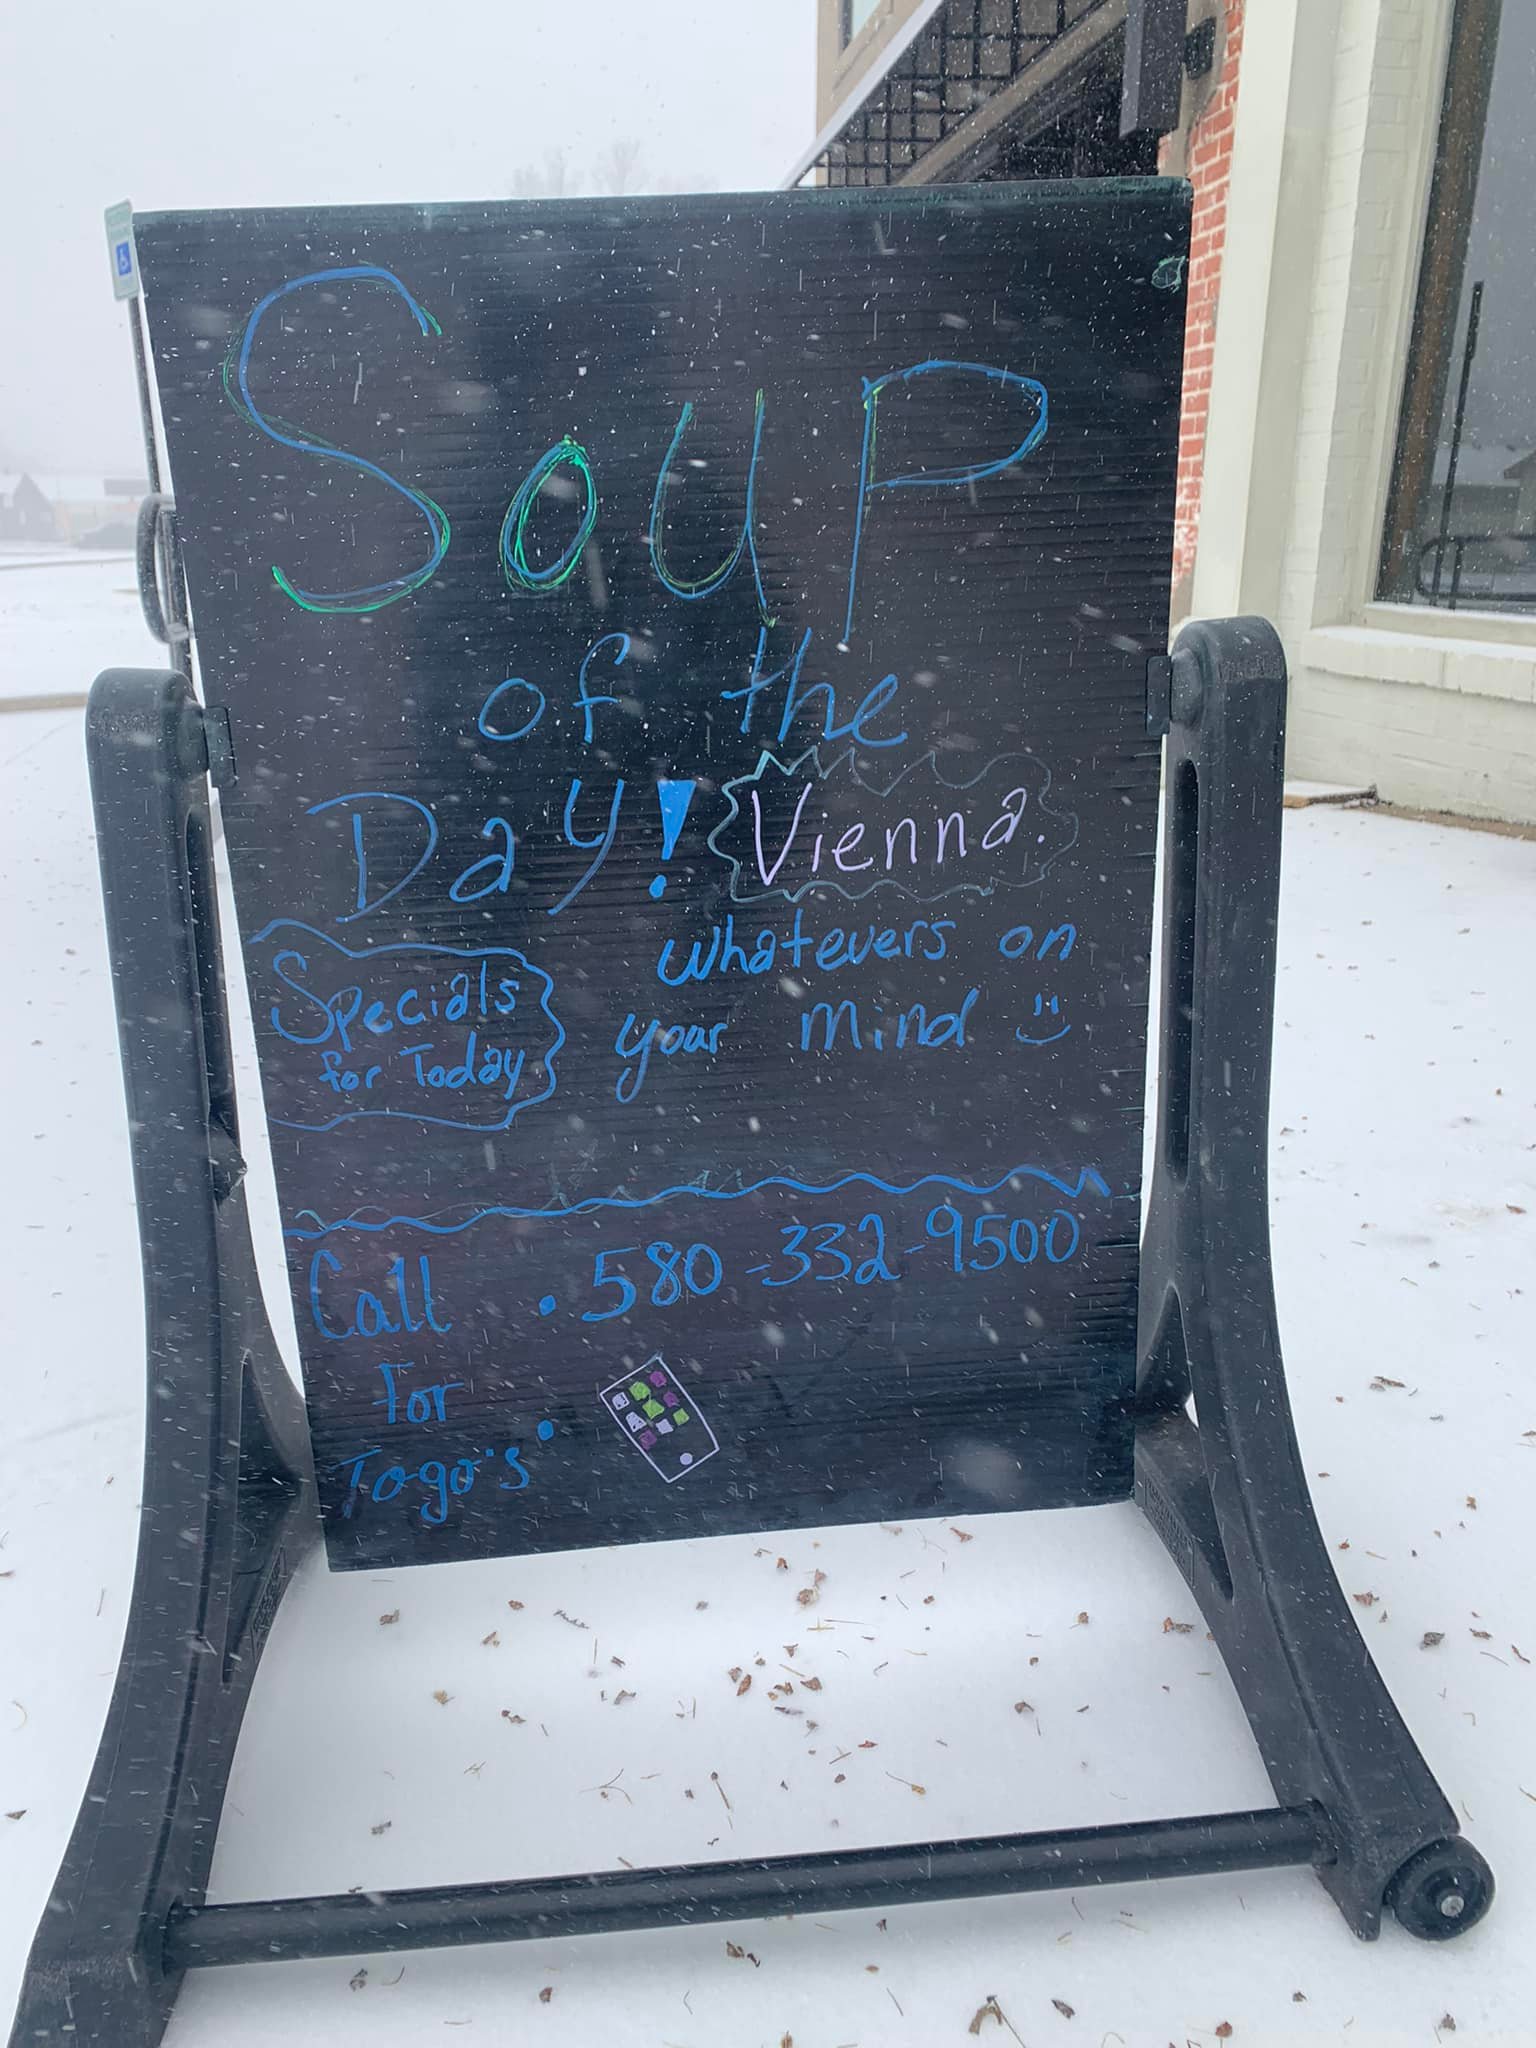 Soup
of the
Day! Vienna.
Specials
for Today
whatevers on
your mind
Call • 580-332-9500
For
Togo's •